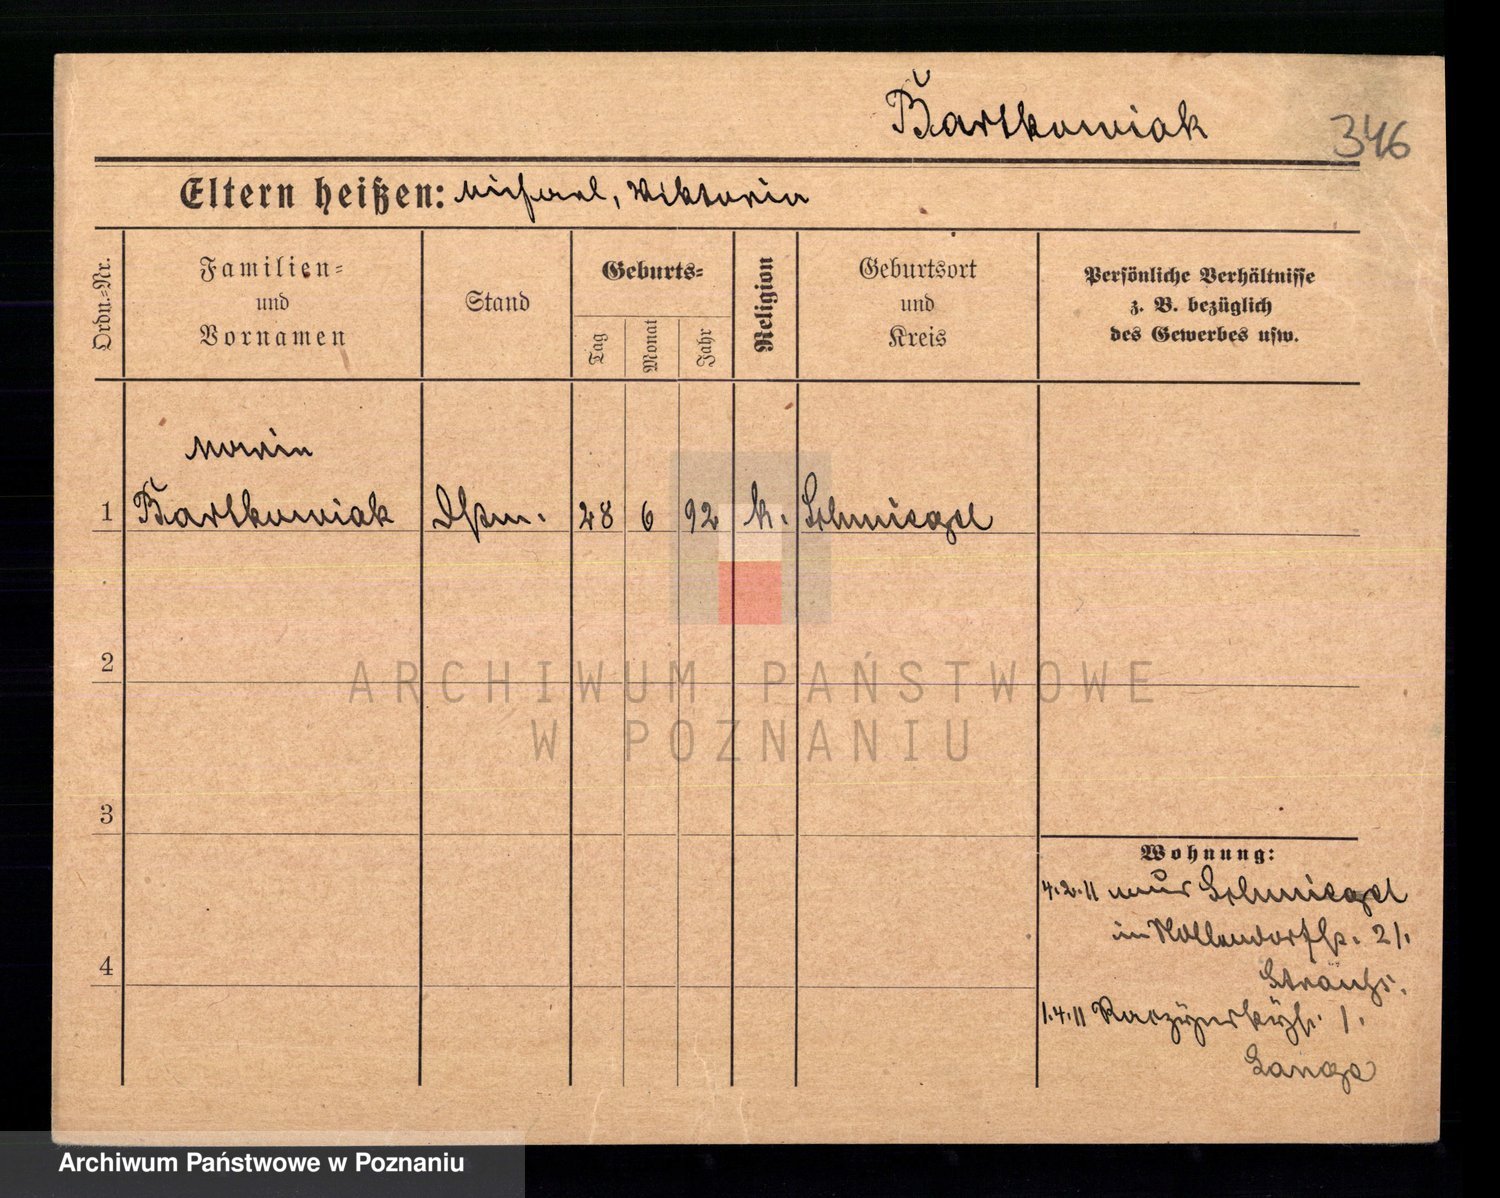 Bartkowiak
346
Eltern heißen: Michael, Viktoria
Ordn.-Nr.
Familien-
und
Vornamen
Stand
Geburts-
Tag
Monat
Jahr
Religion
Geburtsort
und
Kreis
Persönliche Verhältnisse
z. B. bezüglich
des Gewerbes usw.
Maria
1 Bartkowiak 28 6 92 k. Schmiegel
2
3
4
ARCHIWUM PAŃSTWOWE
W POZNANIU
Wohnung:
4.2.11 Schmiegel
in Nollendorfstr. 21.
1.4.11 1.
Lange
Archiwum Państwowe w Poznaniu